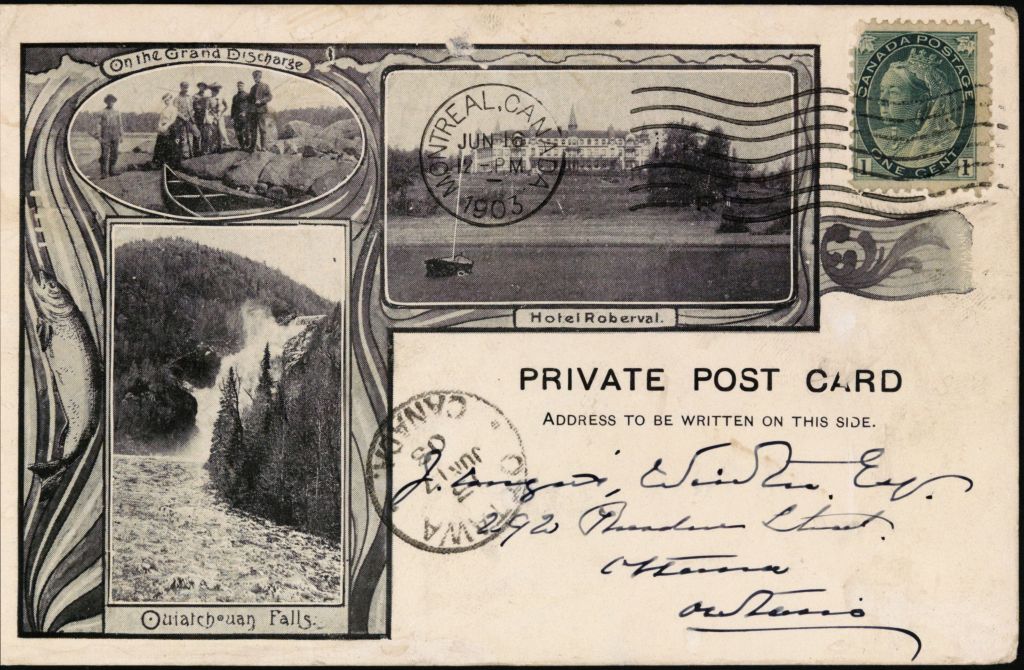 On the Grand Discharge
MONTREAL, CANADA.
JUN 16
12 - PM
1903
CANADA POSTAGE
1 ONE CENT 1
Hotel Roberval.
PRIVATE POST CARD
ADDRESS TO BE WRITTEN ON THIS SIDE.
OTTAWA
JUN 17
03
CANADA
Esq.
Street
Ottawa
Ontario
Ouiatchouan Falls.